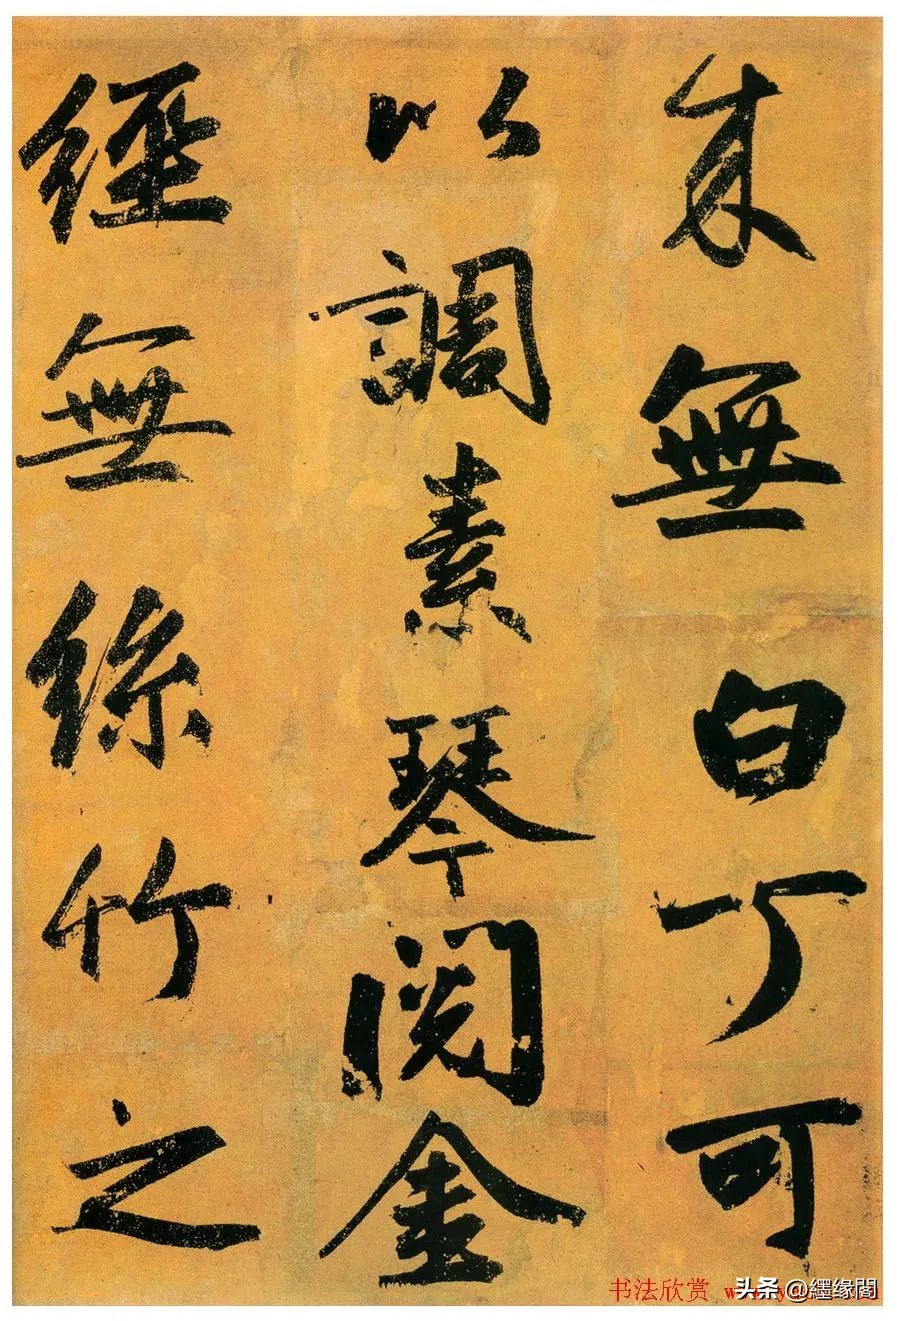 来無白丁可
以調素琴閱金
經無絲竹之
书法欣赏
头条 @纆缘閣